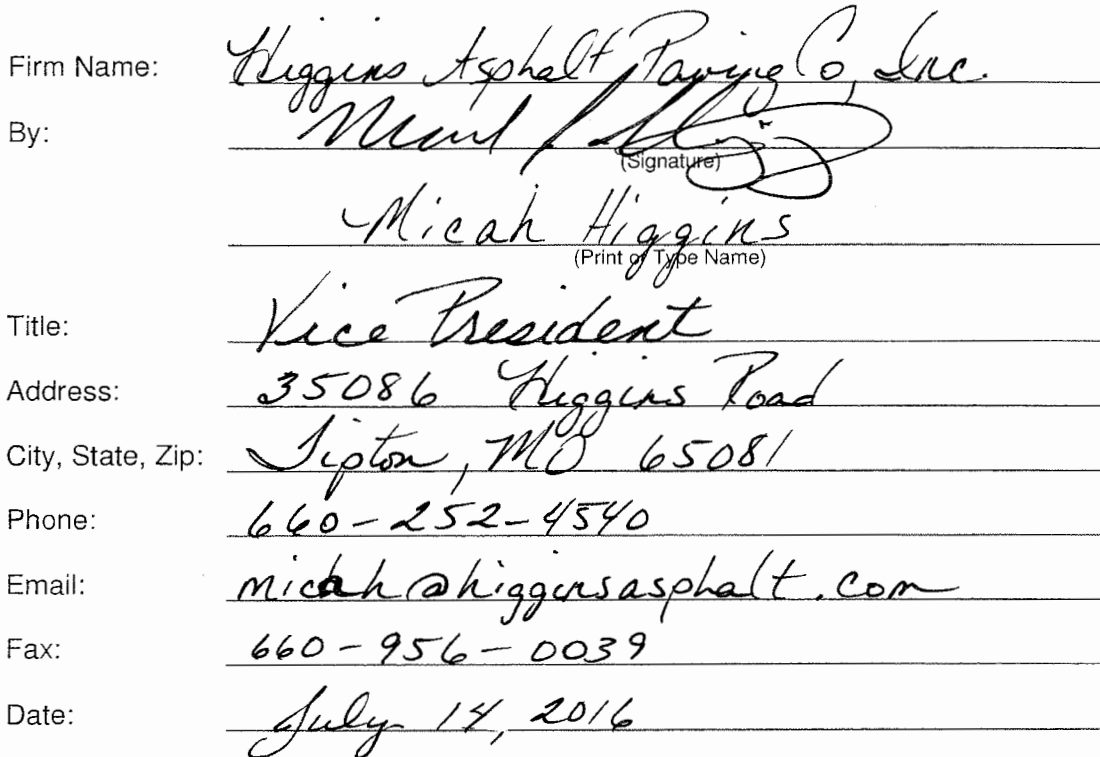 Firm Name: Higgins Asphalt Paving Co, Inc.
By:
(Signature)
Micah Higgins
(Print or Type Name)
Title: Vice President
Address: 35086 Higgins Road
City, State, Zip: Tipton, MO 65081
Phone: 660-252-4540
Email: micah@higginsasphalt.com
Fax: 660-956-0039
Date: July 14, 2016